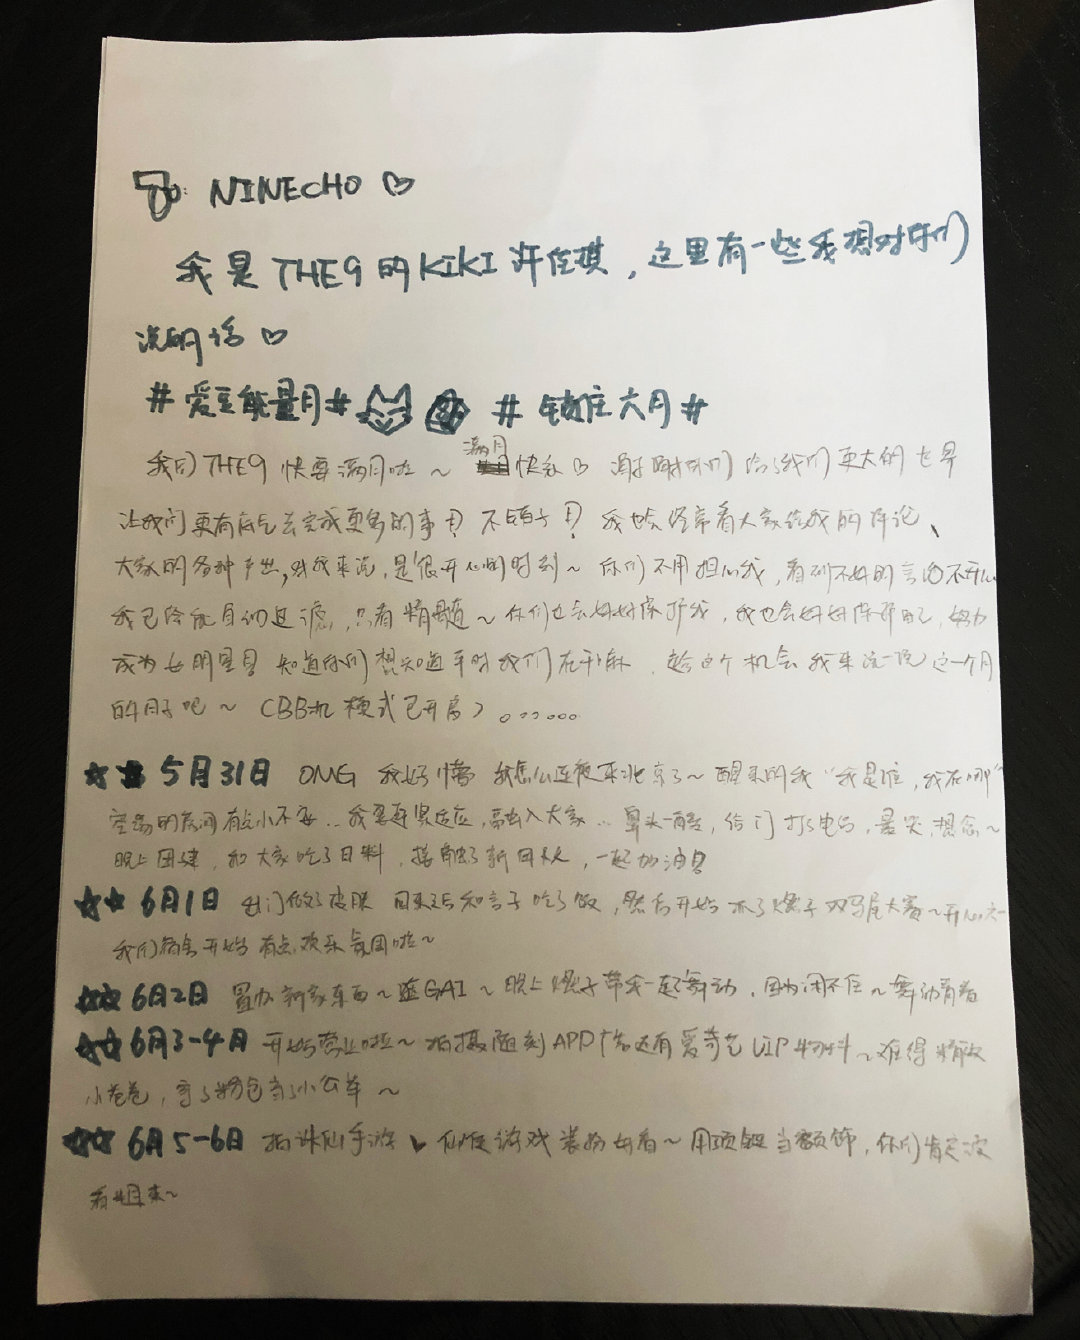 To: NINECHO ♡
我是THE9的KIKI许佳琪，这里有一些我想对你们
说的话 ♡
#爱豆能量月# #镇庄六月#
我们THE9快要满月啦～ 满月快乐♡ 谢谢你们给了我们更大的世界
让我们更有底气去完成更多的事！不负子！我也会经常看大家给我的评论、
大家的各种产出，对我来说，是很开心的时刻～ 你们不用担心我，看到不好的言论不开心
我已经能自动过滤，只看精髓～你们也会好好保护我，我也会好好保护自己，努力
成为女明星 知道你们想知道平时我们在干嘛，趁这个机会我来说一说这一个月
的日子吧～（BB机模式已开启）。。。。。。
5月31日 OMG 我好懵 我怎么连夜来北京了～醒来的我“我是谁，我在哪”
空荡的房间有点小不安..我要赶紧适应，融入大家...鼻头一酸，给 打了电话，是哭，想念～
晚上团建，和大家吃了日料，接触了新团队，一起加油
6月1日 出门做了皮肤 回来之后和言子吃了饭，然后开始 了 子双马尾大赛～开心
我们宿舍开始有点欢乐氛围啦～
6月2日 置办新家东西～逛GAI～晚上 子带我一起舞动，因为闲不住～舞动青春
6月3-4月 开始营业啦～拍摄随刻APP广告还有爱奇艺VIP物料～难得精致
小卷卷，穿了粉色 了小公举～
6月5-6日 拍诛仙手游 ♥ 仙侠游戏装扮好看～用项链当额饰，你们肯定没
看出来～